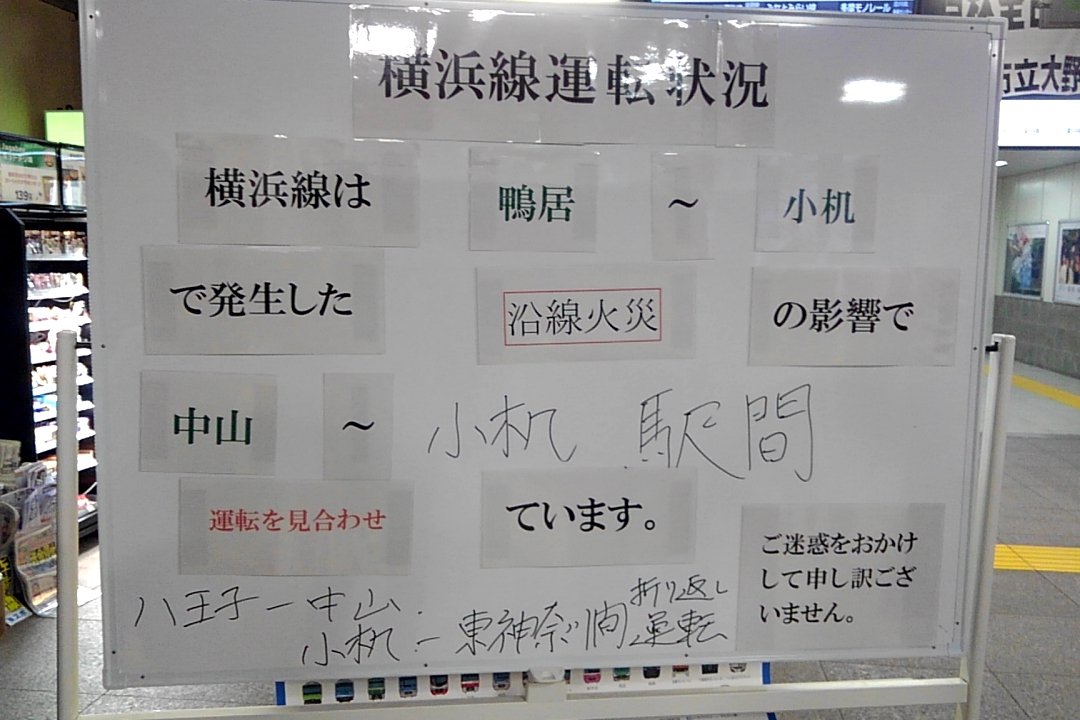 横浜線運転状況
横浜線は 鴨居 ～ 小机
で発生した 沿線火災 の影響で
中山 ～ 小机 駅間
運転を見合わせ ています。
ご迷惑をおかけ
して申し訳ござ
いません。
八王子ー中山
小机ー東神奈川間 折り返し
運転
多摩モノレール
市立大野
139